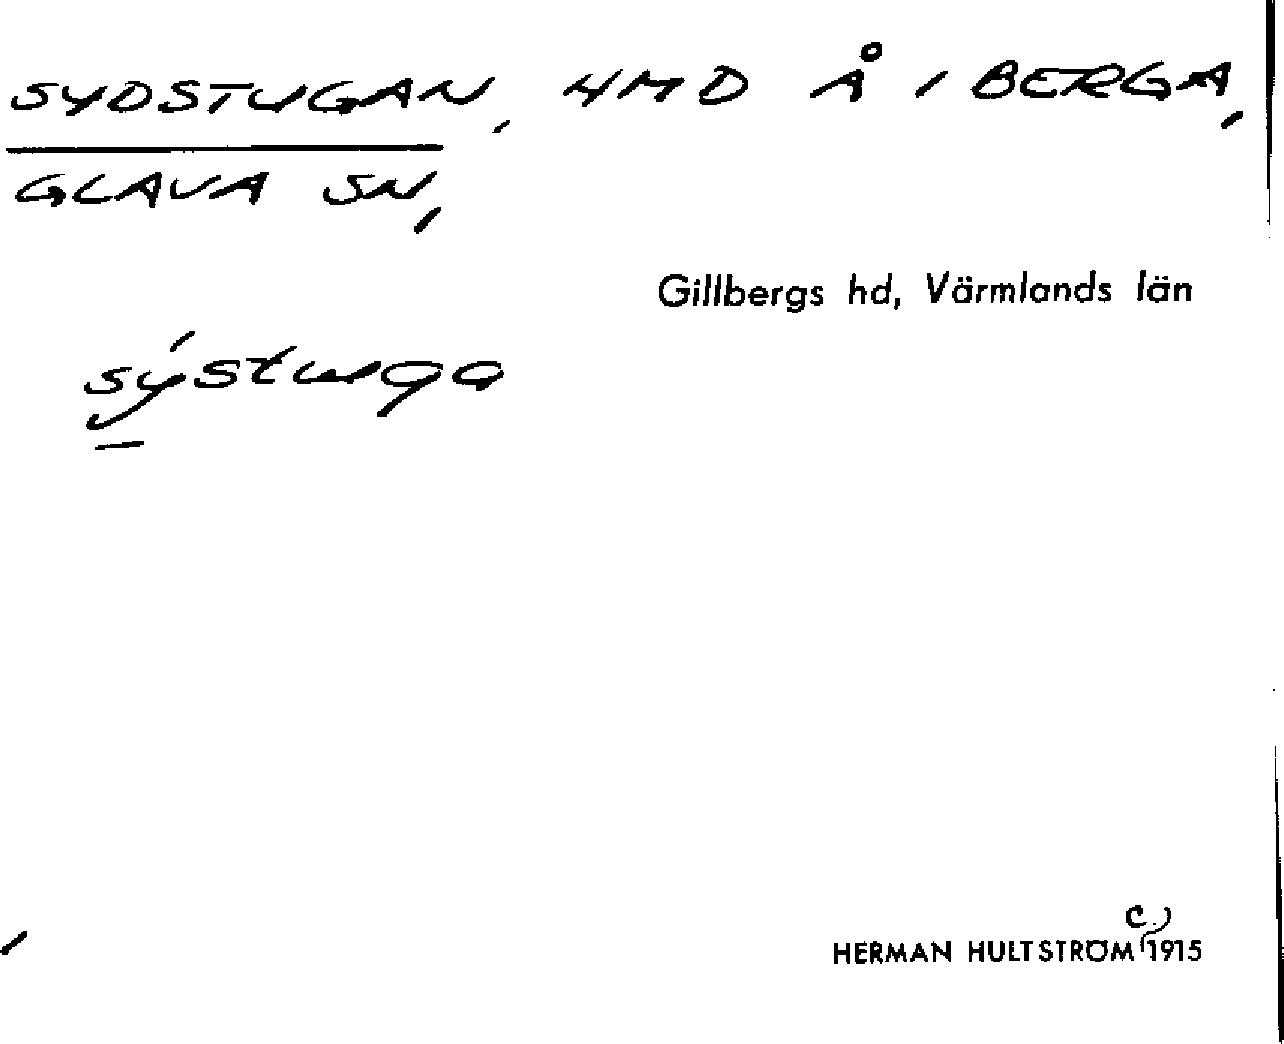 SYDSTUGAN, HMD Å I BERGA,
GLAVA SN,
Gillbergs hd, Värmlands län
sýstuga
HERMAN HULTSTRÖM c. 1915